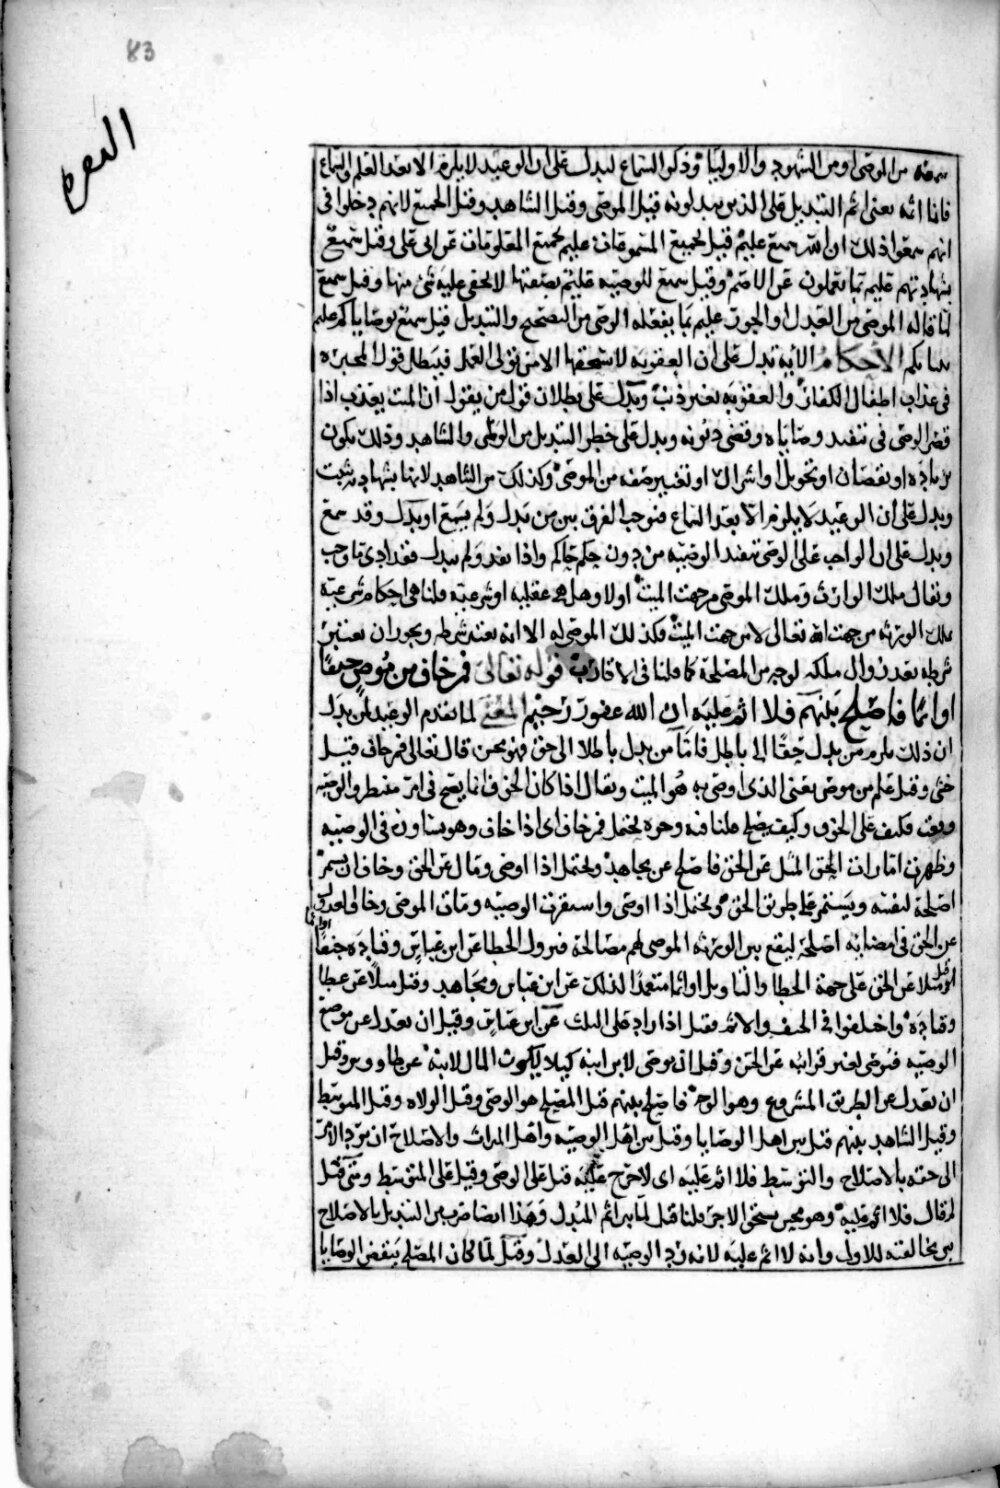 83
البقرة
سمعه من الموصي او من الشهود والاوليا وذكر السماع ليدل على ان الوعيد لا يلزم الا بعد العلم والسماع
فانما اثمه يعني اثم التبديل على الذين يبدلونه قيل الموصي وقيل الشاهد وقيل الجميع لانهم دخلوا في
انهم سمعوا ذلك ان الله سميع عليم قيل لجميع المسموعات عليم بجميع المعلومات عن ابي علي وقيل سميع
بشهادتهم عليم بما يعملون عن الاصم وقيل سميع للوصيه عليم بصفتها لا يخفى عليه شي منها وقيل سميع
لما قاله الموصي من العدل او الجور عليم بما يفعله الوصي من التصحيح والتبديل قيل سميع بوصاياكم عليم
بنياتكم الاحكام الايه تدل على ان العقوبه لا يستحقها الا من تولى العمل فيبطل قول المجبره
في عذاب اطفال الكفار والعقوبه بغير ذنب ويدل على بطلان قول من يقول ان الميت يعذب اذا
قصر الوصي في تنفيذ وصاياه وقضى ديونه ويدل على حظر التبديل من الوصي والشاهد وذلك يكون
بزياده او نقصان او تحويل او اشراك او تغيير صفه من الموصي وكذلك من الشاهد لانها بشهادته تثبت
ويدل على ان الوعيد لا يلزم الا بعد السماع فنوجب الفرق بين من بدل ولم يسمع او بدل وقد سمع
ويدل على ان الواجب على الوصي تنفيذ الوصيه من دون حكم حاكم واذا نفذ ولم يبدل فقد ادى ما وجب
ويقال ملك الوارث وملك الموصى من جهت الميت اولا وهل هي عقليه او شرعيه قلنا هي احكام شرعيه
ملك الورثه من جهت الله تعالى لا من جهت الميت فكذلك الموصى له الا انه يعتبر شرطه ويجوز ان يعتبر
شرطه بعد زوال ملكه لوجه من المصلحة كما قلنا في الاقارب قوله تعالى فمن خاف من موص جنفا
او اثما فاصلح بينهم فلا اثم عليه ان الله غفور رحيم المعنى لما تقدم الوعيد لمن بدل
ان ذلك يلزم من بدل حقا الى باطل فاما من بدل باطلا الى حق فهو محسن قال تعالى فمن خاف قيل
خشي وقيل علم من موص يعني الذي اوصى به هو الميت ويقال اذا كان الخوف انما يصح في امر منتظر والوصيه
وقعت فكيف على الخوف وكيف يصلح قلنا فيه وجوه يحتمل فمن خاف اي اذا خاف وهو يشاورن في الوصيه
وظهرت امارات الحق الميل عن الحق فاصلح عن مجاهد ويحتمل اذا اوصى ومال عن الحق وخاف ان يستمر
اصلحه لنفسه ويستمر على طريق الحق ويحتمل اذا اوصى واستقرت الوصيه ومات الموصي
عن الحق في امضائه اصلحه ليقع بين الورثه الموصى لهم مصالحة فيزول الخطا عن ابن عباس وقتاده جنفا
او اثما
قيل ميلا عن الحق على جهة الخطا والتاويل او اثما متعمدا لذلك عن ابن عباس ومجاهد وقيل ميلا عن عطا
وقتاده واختلفوا في الجنف والاثم فقيل اذا زاد على الثلث عن ابن عباس وقيل ان يعدل عن موضع
الوصيه فيوصي لغير قرابته عن الحسن وقيل ان يوصي لابن ابنه كيلا يكون المال لابنه عن طاووس وقيل
ان يعدل عن الطريق المشروع وهو الوجه فاصلح بينهم قيل المصلح هو الوصي وقيل الولاه وقيل المتوسط
وقيل الشاهد بينهم قيل بين اهل الوصايا وقيل بين اهل الوصيه واهل الميراث والاصلاح ان يرد الامر
الى حقه بالاصلاح والتوسط فلا اثم عليه اي لا حرج عليه قيل على الوصي وقيل على المتوسط ومتى قيل
لم قال فلا اثم عليه وهو محسن يستحق الاجر قلنا قيل لما بين اثم المبدل وهذا ايضا ضرب من التبديل بالاصلاح
بين مخالفته للاول وانه لا اثم عليه لانه رد الوصيه الى العدل وقيل لما كان المصلح ينقص الوصايا